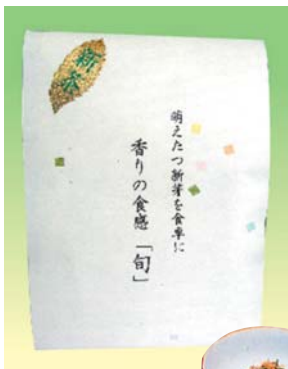 新茶
萌えたつ新芽を食卓に
香りの食感「旬」